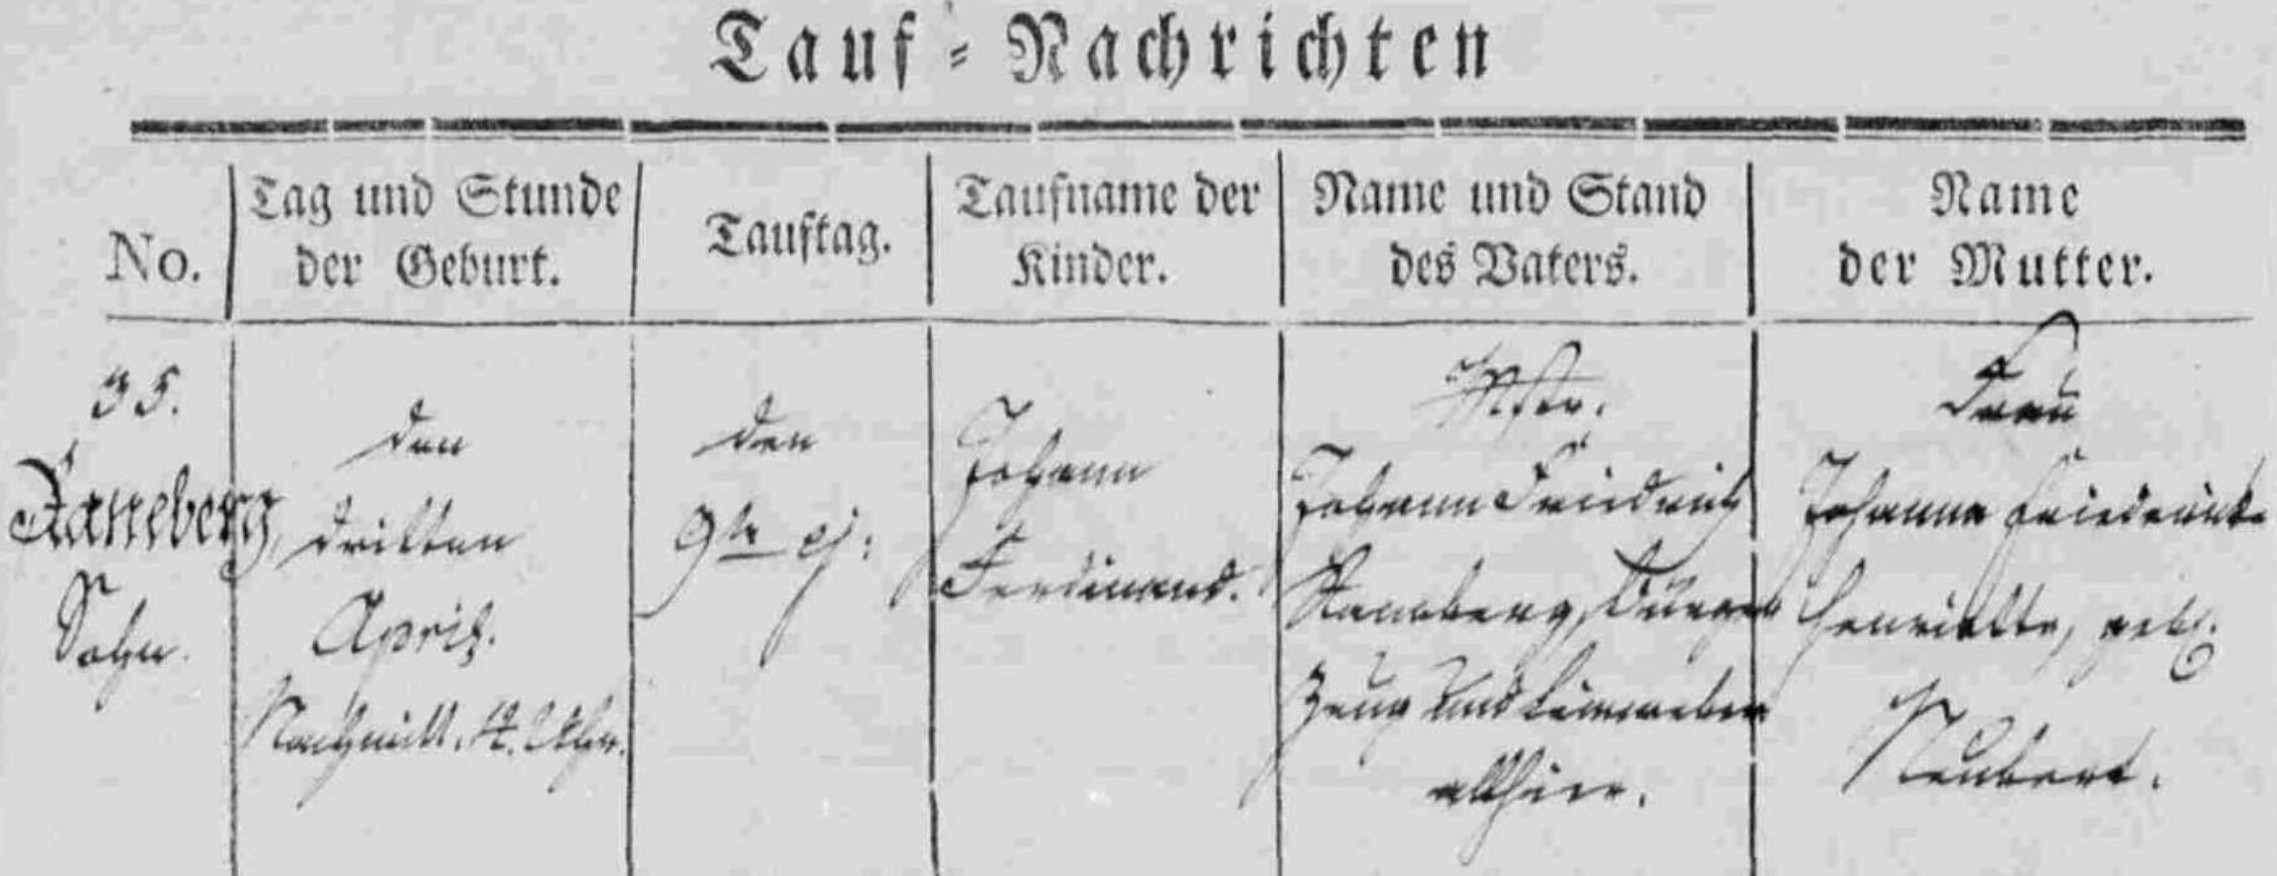 Tauf-Nachrichten
No.
Tag und Stunde
der Geburt.
Tauftag.
Taufname der
Kinder.
Name und Stand
des Vaters.
Name
der Mutter.
35.
Sohn.
den
dritten
April.
Nachmitt. Uhr.
den
9te ej:
Johann
Ferdinand.
Mstr.
Johann Friedrich
Bürger
Zeug und Leinweber
allhier.
Frau
Johanna Friedericke
Henriette, geb.
Neubert.